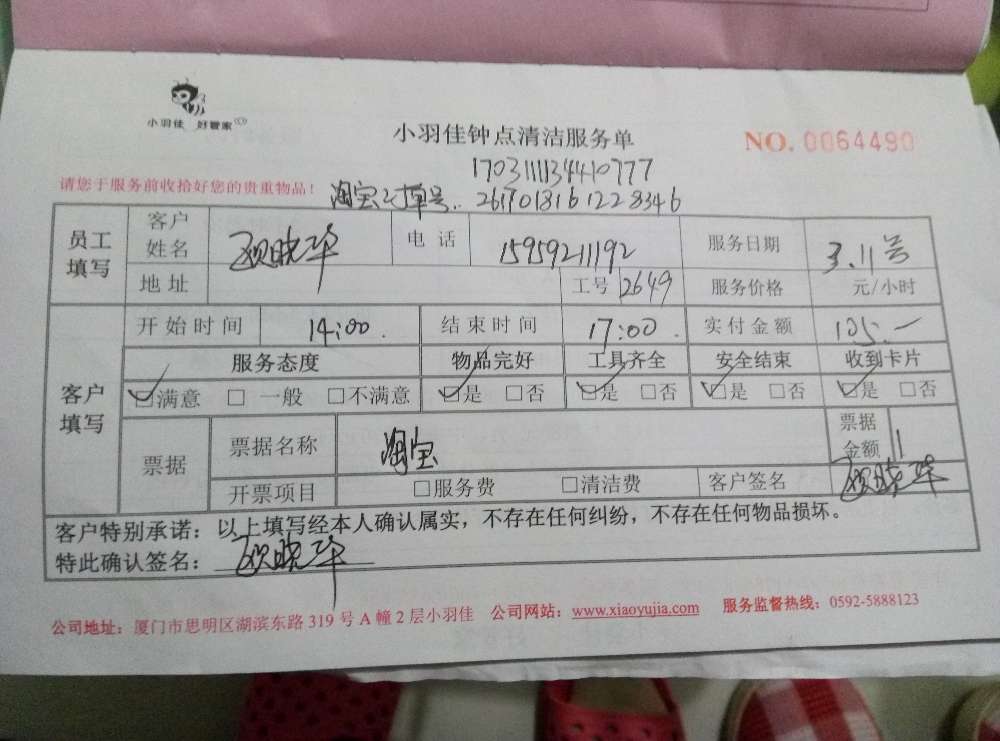 小羽佳 好管家
小羽佳钟点清洁服务单
NO. 0064490
1703111134410777
请您于服务前收拾好您的贵重物品！
淘宝订单号： 2617018161228346
员工填写 客户姓名 欧晓华 电话 15959211192 服务日期 3.11号
地址 工号 2649 服务价格 元/小时
客户填写 开始时间 14:00. 结束时间 17:00. 实付金额 105.—
服务态度 物品完好 工具齐全 安全结束 收到卡片
☑满意 □ 一般 □不满意 ☑是 □否 ☑是 □否 ☑是 □否 ☑是 □否
票据 票据名称 淘宝 票据金额
开票项目 □服务费 □清洁费 客户签名 欧晓华
客户特别承诺：以上填写经本人确认属实，不存在任何纠纷，不存在任何物品损坏。
特此确认签名： 欧晓华
公司地址：厦门市思明区湖滨东路 319 号 A 幢 2 层小羽佳 公司网站：www.xiaoyujia.com 服务监督热线：0592-5888123